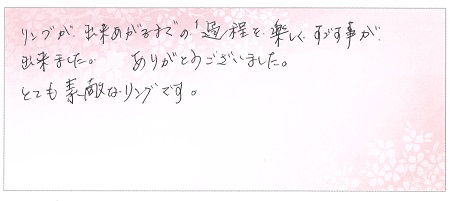 リングが出来あがるまでの過程を楽しくすごす事が
出来ました。 ありがとうございました。
とても素敵なリングです。